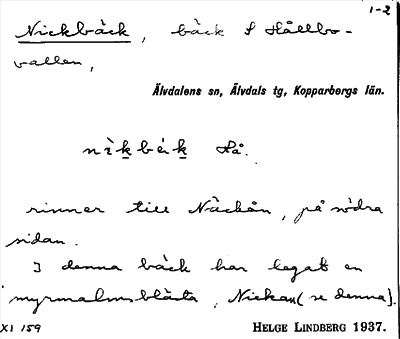 1-2
Nickbäck, bäck S Hållbo-
vallen,
Älvdalens sn, Älvdals tg, Kopparbergs län.
nìk̲bèk̲ Hå.
rinner till Näckån, på södra
sidan.
I denna bäck har legat en
myrmalmsblästa, Nickan (se denna).
XI 159 HELGE LINDBERG 1937.